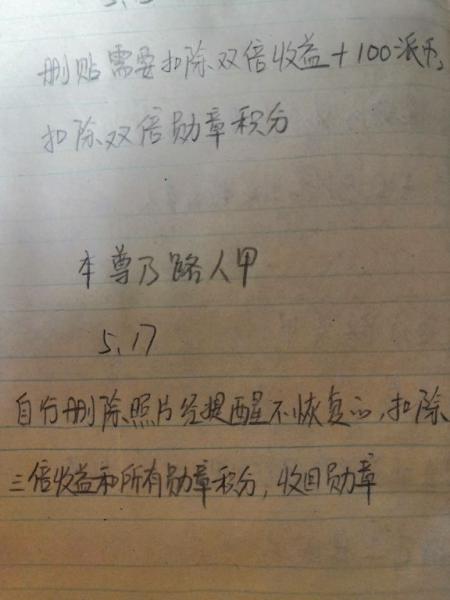 删贴需要扣除双倍收益+100派币,
扣除双倍勋章积分
本尊乃路人甲
5.17
自行删除照片经提醒不恢复的,扣除
三倍收益和所有勋章积分,收回勋章